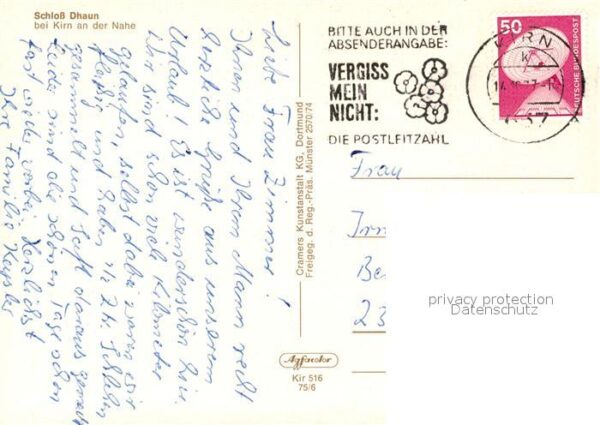 Schloß Dhaun
bei Kirn an der Nahe
Liebe Frau Zimmer!
Ihnen und Ihrem Mann recht
herzliche Grüße aus unserem
Urlaub! Es ist wunderschön hier.
Wir sind schon viele Kilometer
gelaufen, selbst dabei waren wir
fleißig und haben 1/2 Ztr. Schlehen
gesammelt und Saft daraus gemacht
Leider sind die schönen Tage schon
fast wieder vorbei. Herzlichst
Ihre Familie
Cramers Kunstanstalt KG, Dortmund
Freigeg. d. Reg.-Präs. Münster 2570/74
Agfacolor
Kir 516
75/6
BITTE AUCH IN DER
ABSENDERANGABE:
VERGISS
MEIN
NICHT:
DIE POSTLEITZAHL
50
DEUTSCHE BUNDESPOST
KIRN
Frau
Irm
Be
23
privacy protection
Datenschutz